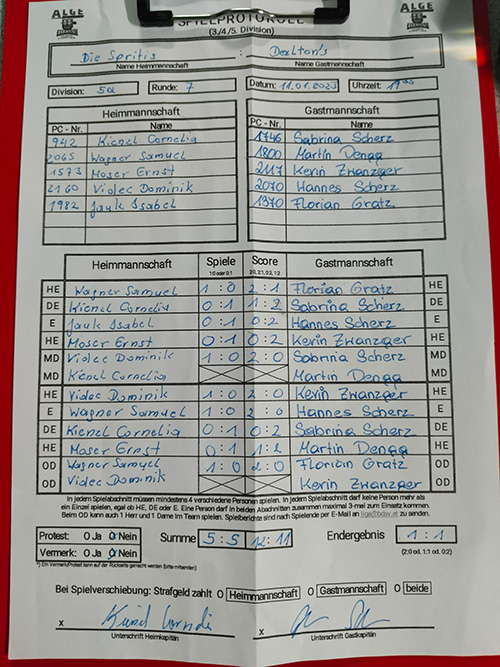 ALGE ALGE
SPIELPROTOKOLL
(3./4./5. Division)
Die Spritis : Dealton's
Name Heimmannschaft Name Gastmannschaft
Division: 5a Runde: 7 Datum: 11.01.2023 Uhrzeit: 19
Heimmannschaft Gastmannschaft
PC - Nr. Name PC - Nr. Name
942 Kienel Cornelia 1746 Sabrina Scherz
2065 Wagner Samuel 1800 Martin Dengg
1573 Moser Ernst 2117 Kerin Zwanzger
2160 Violec Dominik 2070 Hannes Scherz
1982 Jauk Isabel 1370 Florian Gratz
Heimmannschaft Spiele Score Gastmannschaft
1:0 oder 0:1 2:0, 2:1, 0:2, 1:2
HE Wagner Samuel 1:0 2:1 Florian Gratz HE
DE Kienel Cornelia 0:1 1:2 Sabrina Scherz DE
E Jauk Isabel 0:1 0:2 Hannes Scherz E
HE Moser Ernst 0:1 0:2 Kerin Zwanzger HE
MD Violec Dominik 1:0 2:0 Sabrina Scherz MD
MD Kienel Cornelia Martin Dengg MD
HE Violec Dominik 1:0 2:0 Kerin Zwanzger HE
E Wagner Samuel 1:0 2:0 Hannes Scherz E
DE Kienel Cornelia 0:1 0:2 Sabrina Scherz DE
HE Moser Ernst 0:1 1:2 Martin Dengg HE
OD Wagner Samuel 1:0 2:0 Florian Gratz OD
OD Violec Dominik Kerin Zwanzger OD
In jedem Spielabschnitt müssen mindestens 4 verschiedene Personen spielen. In jedem Spielabschnitt darf keine Person mehr als
ein Einzel spielen, egal ob HE, DE oder E. Eine Person darf in beiden Abschnitten zusammen maximal 3-mal zum Einsatz kommen.
Beim OD kann auch 1 Herr und 1 Dame im Team spielen. Spielberichte sind nach Spielende per E-Mail an liga@bdsv.at zu senden.
Protest: O Ja O Nein Summe 5:5 12:11 Endergebnis 1:1
Vermerk: O Ja O Nein (2:0 od. 1:1 od. 0:2)
*) Ein Vermerk/Protest kann auf der Rückseite gemacht werden (bitte mitsenden)
Bei Spielverschiebung: Strafgeld zahlt O Heimmannschaft O Gastmannschaft O beide
x Kienel Cornelia x
Unterschrift Heimkapitän Unterschrift Gastkapitän